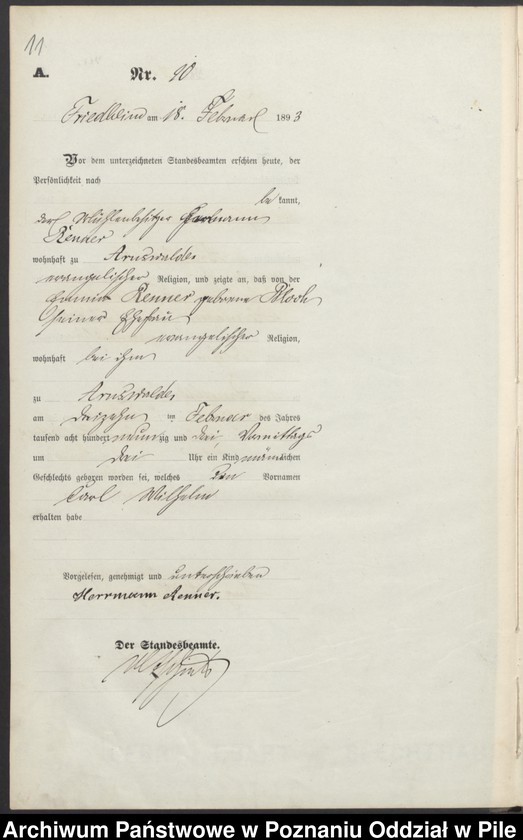 11
A. Nr. 10
am 18. Februar 1893
Vor dem unterzeichneten Standesbeamten erschien heute, der
Persönlichkeit nach
bekannt,
der Mühlenbesitzer Hermann
Renner
wohnhaft zu Arnswalde,
evangelischer Religion, und zeigte an, daß von der
Renner geborene
seiner Ehefrau
evangelischer Religion,
wohnhaft bei ihm
zu Arnswalde,
am dreizehn ten Februar des Jahres
tausend acht hundert neunzig und drei, Vormittags
um drei Uhr ein Kind männlichen
Geschlechts geboren worden sei, welches den Vornamen
Carl Wilhelm
erhalten habe
Vorgelesen, genehmigt und unterschrieben
Herrmann Renner.
Der Standesbeamte.
Archiwum Państwowe w Poznaniu Oddział w Pile